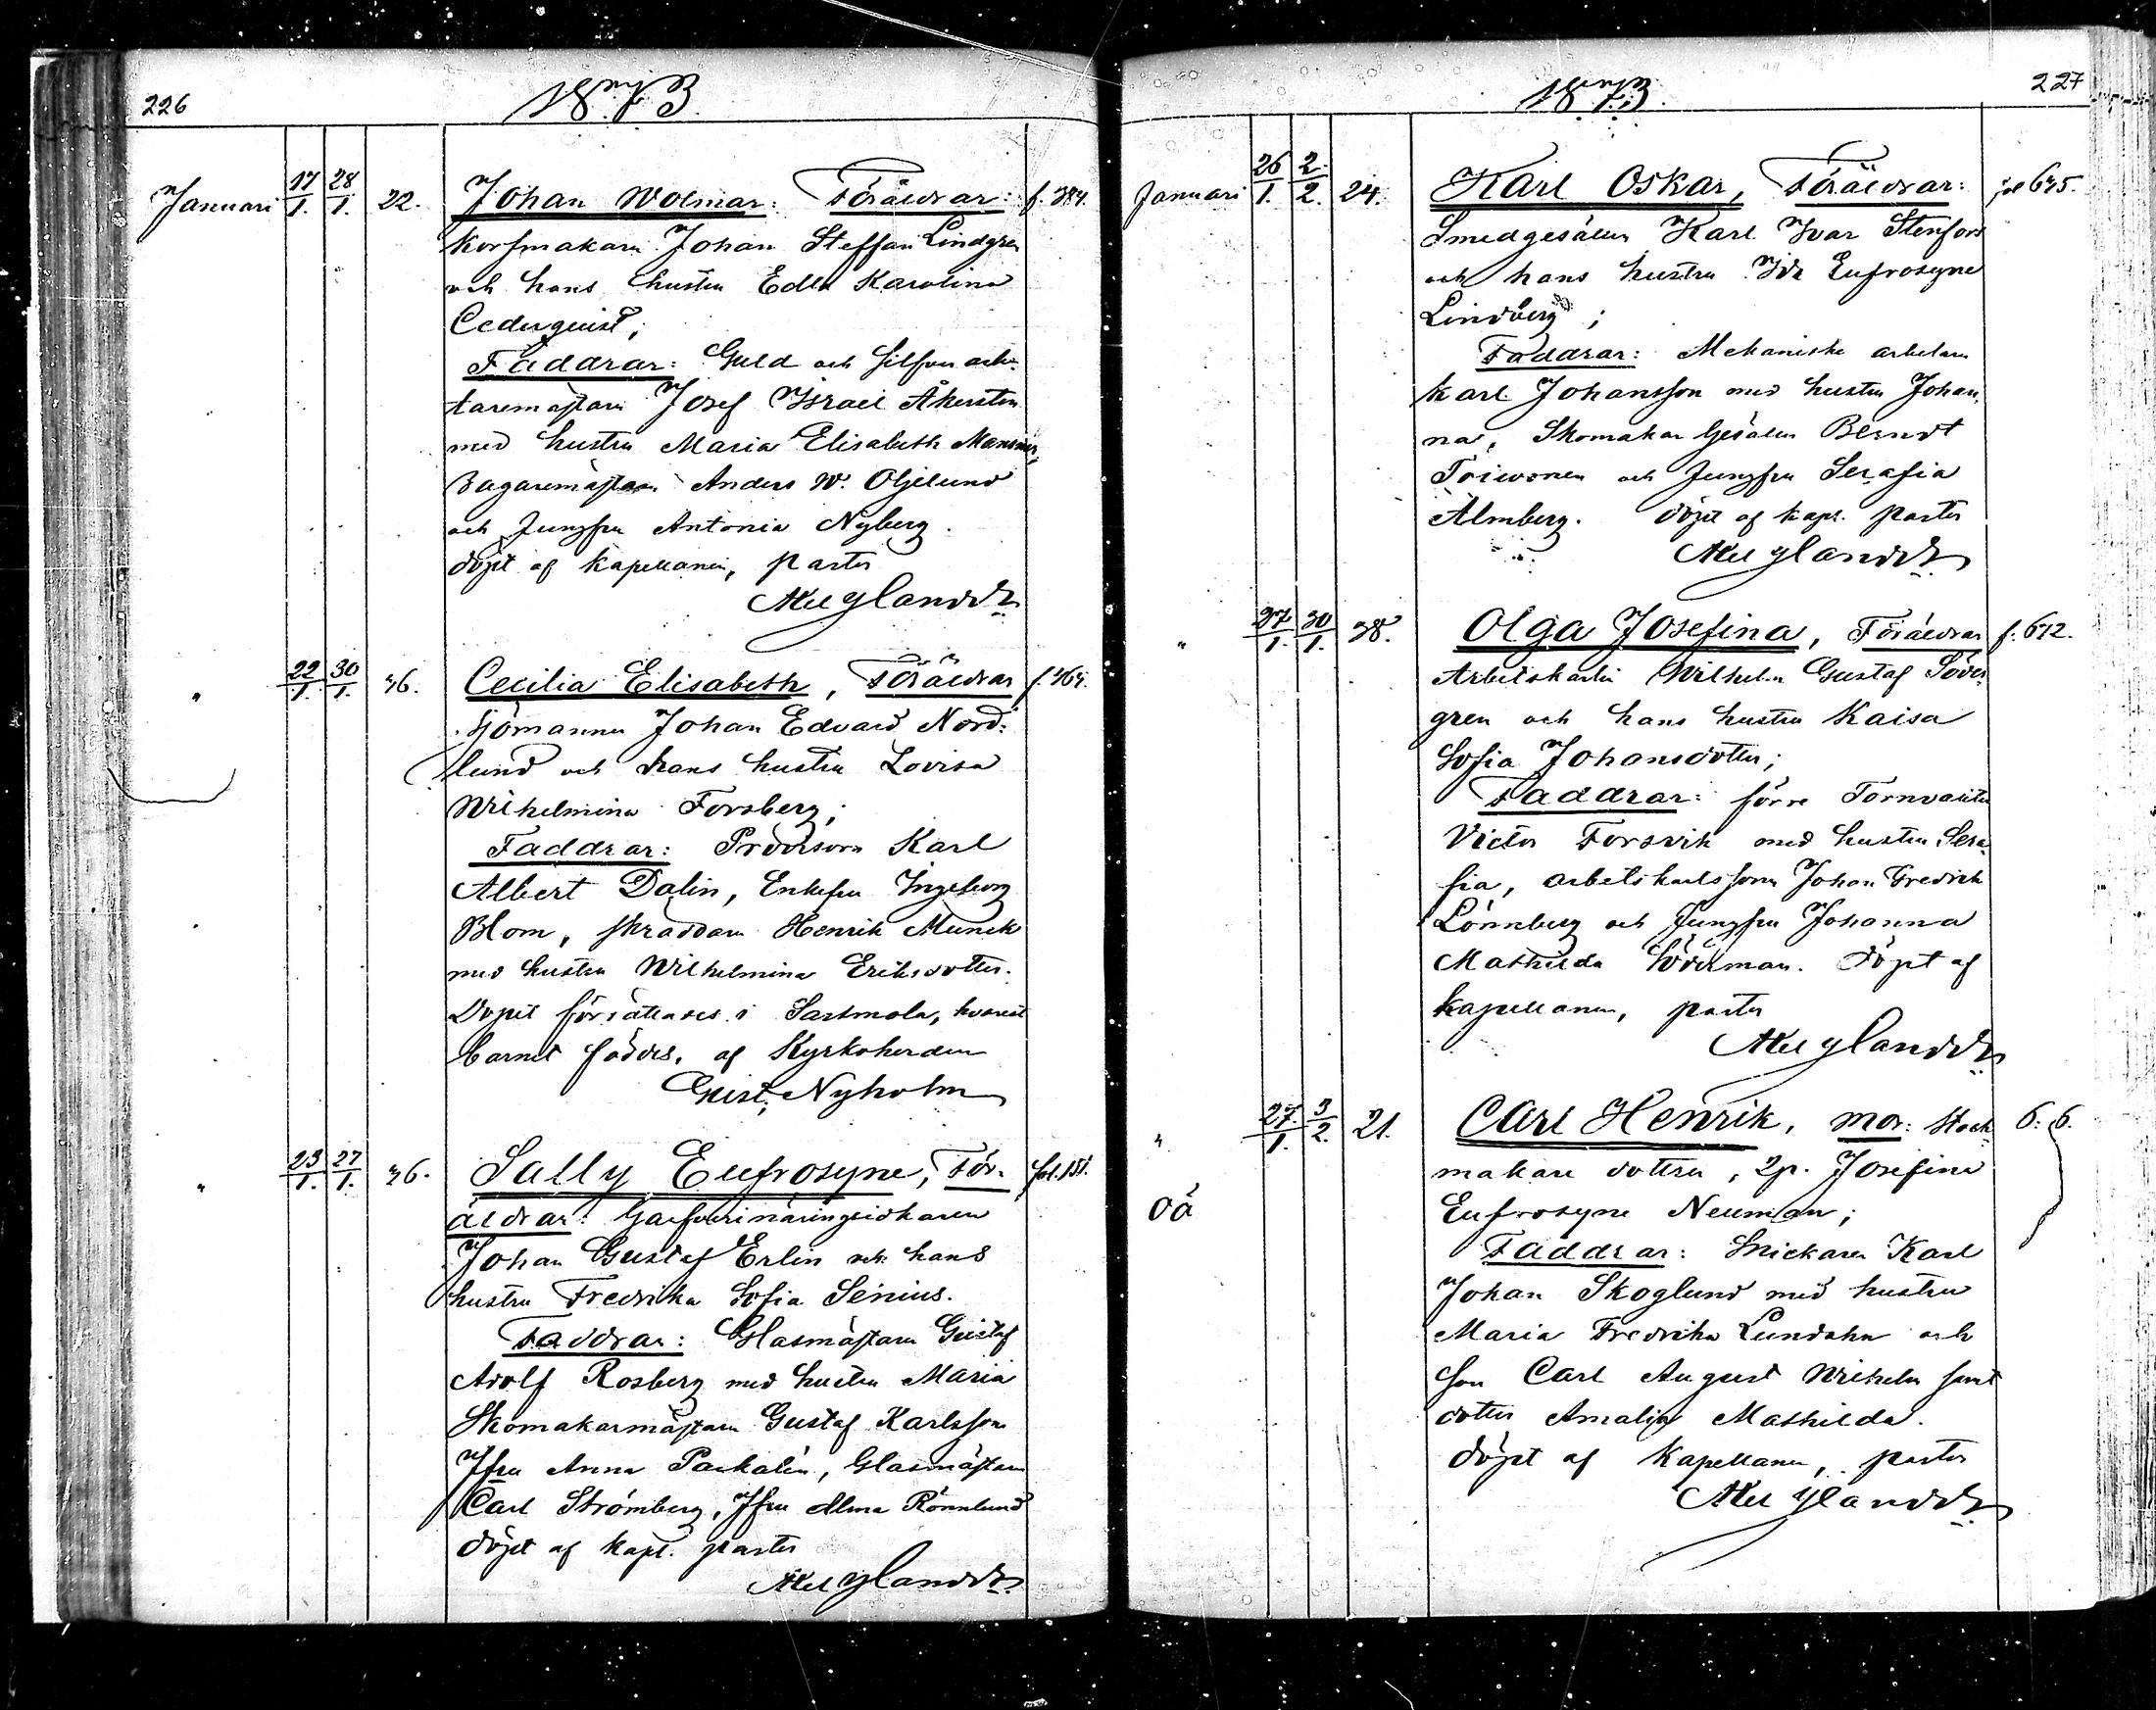 226
1873.
Januari 17/1. 28/1. 22. Johan Wolmar: Föräldrar: f. 384.
Korfmakaren Johan Steffan Lindgren
och hans hustru Edla Karolina
Cederqvist;
Faddrar: Guld och Silfver arbe-
taremästaren Josef Israel Åkersten
med hustru Maria Elisabeth
Bagaremästaren Anders W. Oljelund
och Jungfru Antonia Nyberg.
döpt af kapellanen, pastor
Nylander
" 22/1. 30/1. 36. Cecilia Elisabeth, Föräldrar f. 469.
Sjömannen Johan Edvard Nord-
lund och hans hustru Lovisa
Wilhelmina Forsberg;
Faddrar: Provisorn Karl
Albert Dalin, Enkefru Ingeborg
Blom, skräddaren Henrik Munck
med hustru Wilhelmina Eriksdotter.
Dopet förrättades i Sastmola, hvarest
barnet föddes, af Kyrkoherden
Gust. Nyholm
" 23/1. 27/1. 36. Sally Eufrosyne, För- fol. 151.
äldrar: Garfverinäringsidkaren
Johan Gustaf Erlin och hans
hustru Fredrika Sofia Senius.
Faddrar: Glasmästaren Gustaf
Adolf Rosberg med hustru Maria
Skomakarmästaren Gustaf Karlsson
Jfru Anna Packalen, Glasmästaren
Carl Strömberg, Jfru Alma Rönnlund
döpt af kapl. pastor
Nylander
227
1873.
Januari 26/1. 2/2. 24. Karl Oskar, Föräldrar: fol 645.
Smedgesällen Karl Ivar Stenfors
och hans hustru Ida Eufrosyne
Lindberg;
Faddrar: Mekaniske arbetaren
Karl Johansson med hustru Johan-
na, Skomakar Gesällen Berndt
Toiwonen och Jungfru Serafia
Almberg. döpt af kapl. pastor
Nylander
" 27/1. 30/1. 38. Olga Josefina, Föräldrar f. 612.
Arbetskarlen Wilhelm Gustaf Söder-
gren och hans hustru Kaisa
Sofia Johansdotter;
Faddrar: förre Tornvakten
Victor Forsvik med hustru Sera-
fia, arbetskarlssonen Johan Fredrik
Lönnberg och Jungfru Johanna
Mathilda Söderman. Döpt af
kapellanen, pastor
Nylander
" 27/1. 3/2. 21. Carl Henrik, mor: Stock- 6. 6.
makare dottren, 2p. Josefina
oä Eufrosyne Neuman;
Faddrar: Snickaren Karl
Johan Skoglund med hustru
Maria Fredrika Lundahn och
son Carl August Wilhelm samt
dotter Amalia Mathilda.
döpt af Kapellanen, pastor
Nylander